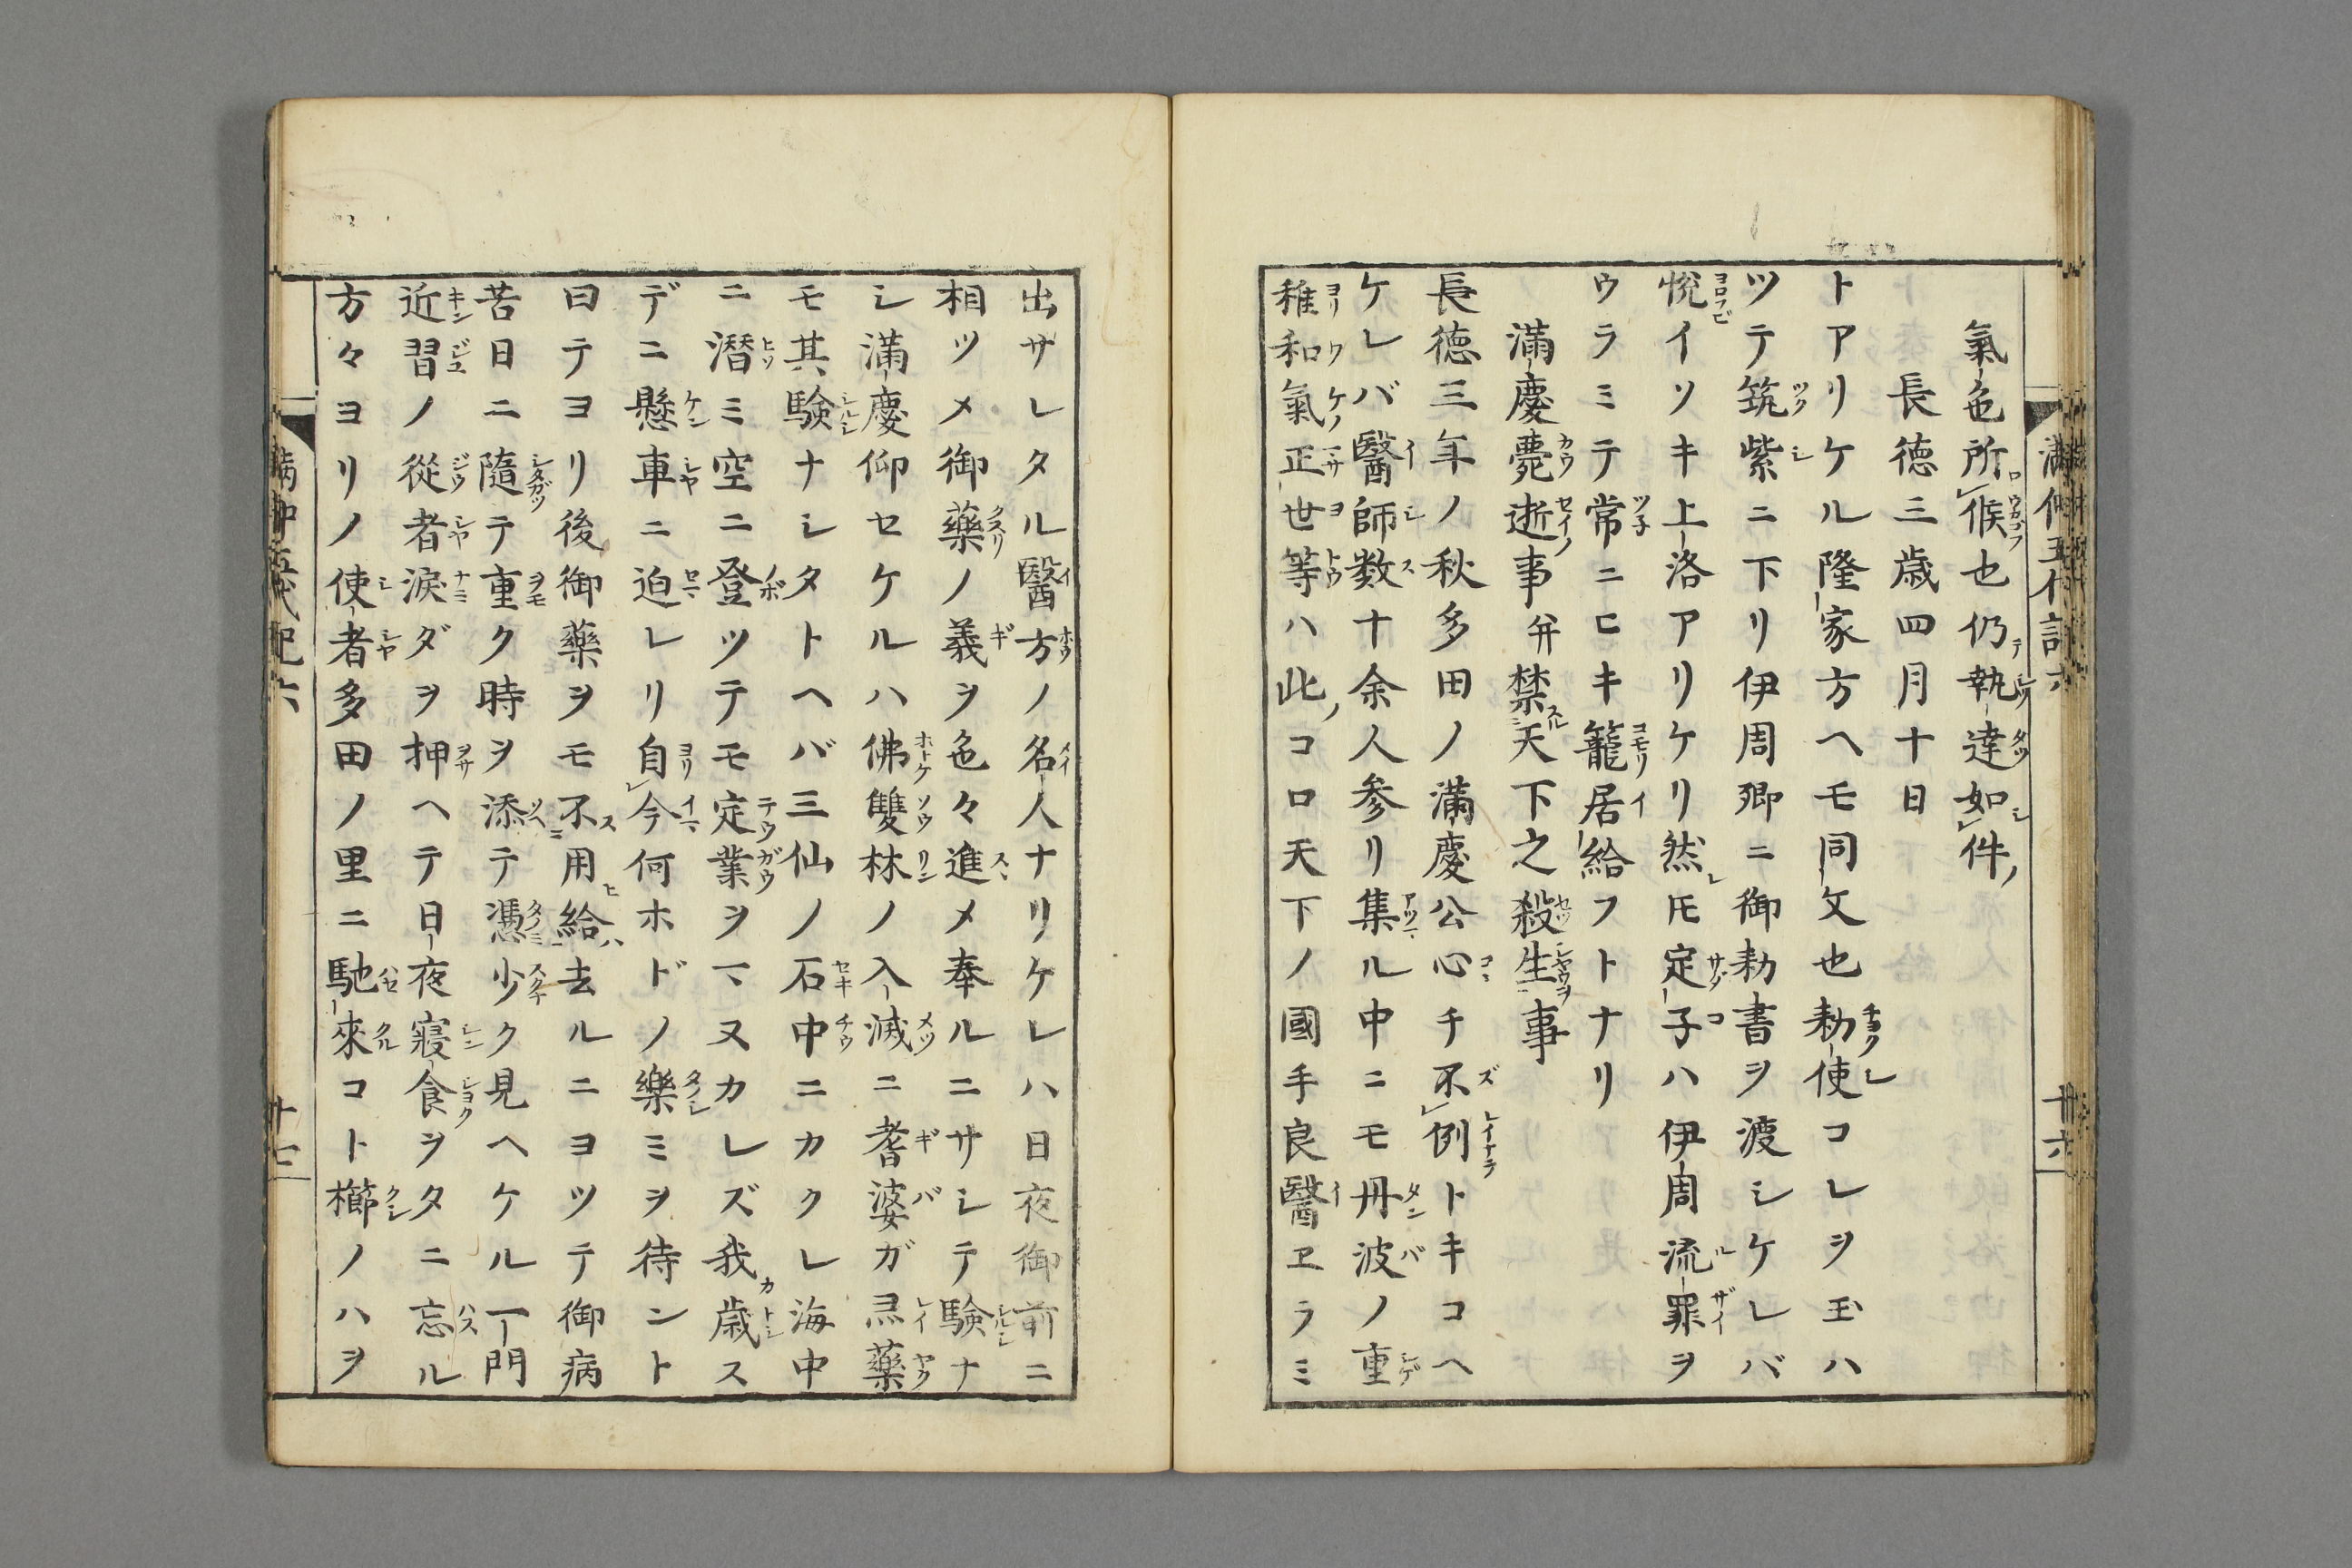 氣色所候也仍執達如件
長徳三歳四月十日
トアリケル隆家方ヘモ同文也勅使コレヲ玉ハ
ツテ筑紫ニ下リ伊周卿ニ御勅書ヲ渡シケレバ
悦イソキ上洛アリケリ然𪜈定子ハ伊周流罪ヲ
ウラミテ常ニヒキ籠居給フトナリ
満慶薨逝事并禁天下之殺生事
長徳三年ノ秋多田ノ満慶公心チ不例トキコヘ
ケレバ醫師数十余人参リ集ル中ニモ丹波ノ重
稚和氣正世等ハ此コロ天下ノ國手良醫ヱラミ
出サレタル醫方ノ名人ナリケレハ日夜御前ニ
相ツメ御藥ノ義ヲ色々進メ奉ルニサシテ験ナ
シ満慶仰セケルハ佛雙林ノ入滅ニ耆婆ガ灵藥
モ其験ナシタトヘバ三仙ノ石中ニカクレ海中
ニ潜ミ空ニ登ツテモ定業ヲマヌカレズ我歳ス
デニ懸車ニ迫レリ自今何ホドノ樂ミヲ待ント
曰テヨリ後御藥ヲモ不用給去ルニヨツテ御病
苦日ニ隨テ重ク時ヲ添テ憑少ク見ヘケル一門
近習ノ從者涙ダヲ押ヘテ日夜寢食ヲタニ忘ル
方々ヨリノ使者多田ノ里ニ馳來コト櫛ノハヲ
満仲五代記六